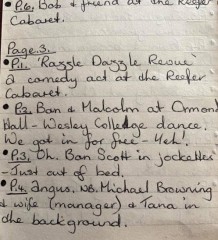 • P.6. Bob & friend at the Reefer
Cabaret.
Page 3.
• P.1. 'Razzle Dazzle Revue'
a comedy act at the Reefer
Cabaret.
• P.2. Ban & Malcolm at Ormond
Hall - Wesley Colledge dance.
We got in for free - Yeh!
• P.3. Oh. Ban Scott in jockettes
- Just out of bed.
• P.4. Angus, NB. Michael Browning
& wife (manager) & Tana in
the background.